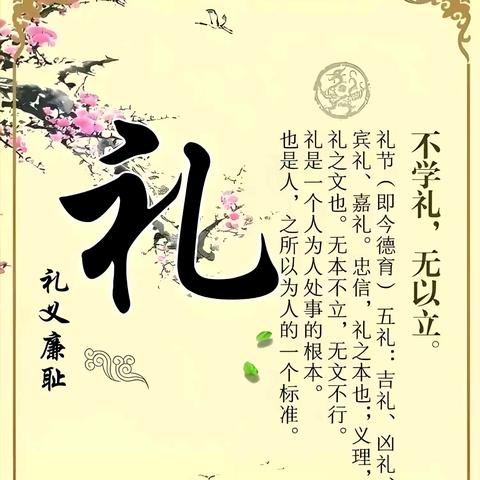 不学礼，无以立。
礼节（即今德育）五礼：吉礼、凶礼、
宾礼、嘉礼。忠信，礼之本也；义理，
礼之文也。无本不立，无文不行。
礼是一个人为人处事的根本。
也是人，之所以为人的一个标准。
礼
礼义廉耻